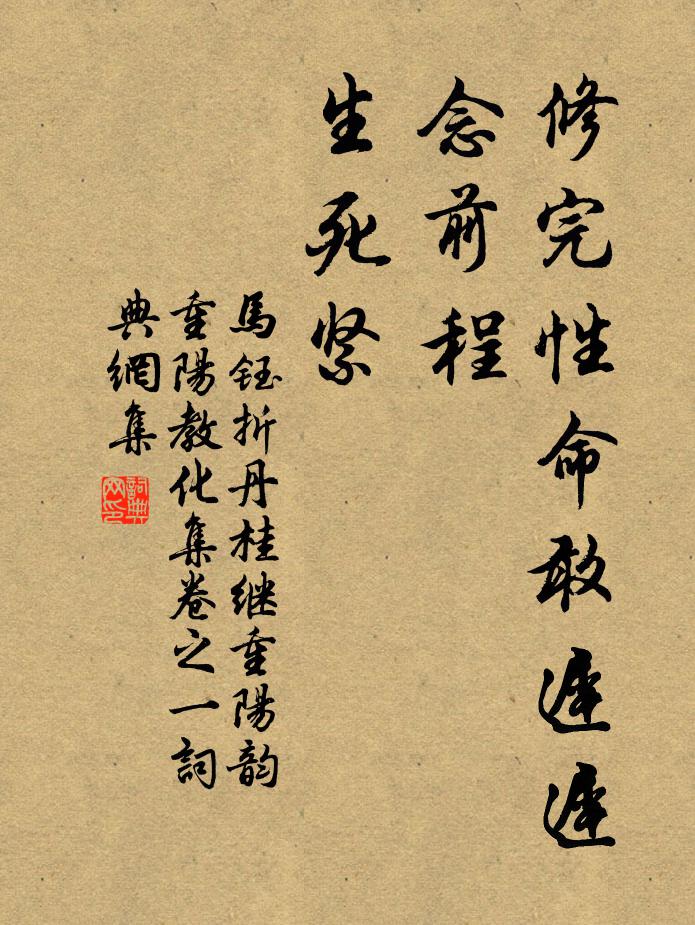 修完性命敢遲遲
念前程
生死紧
馬鈺折丹桂继重陽韵
重陽教化集卷之一詞
典網集
詞典网印